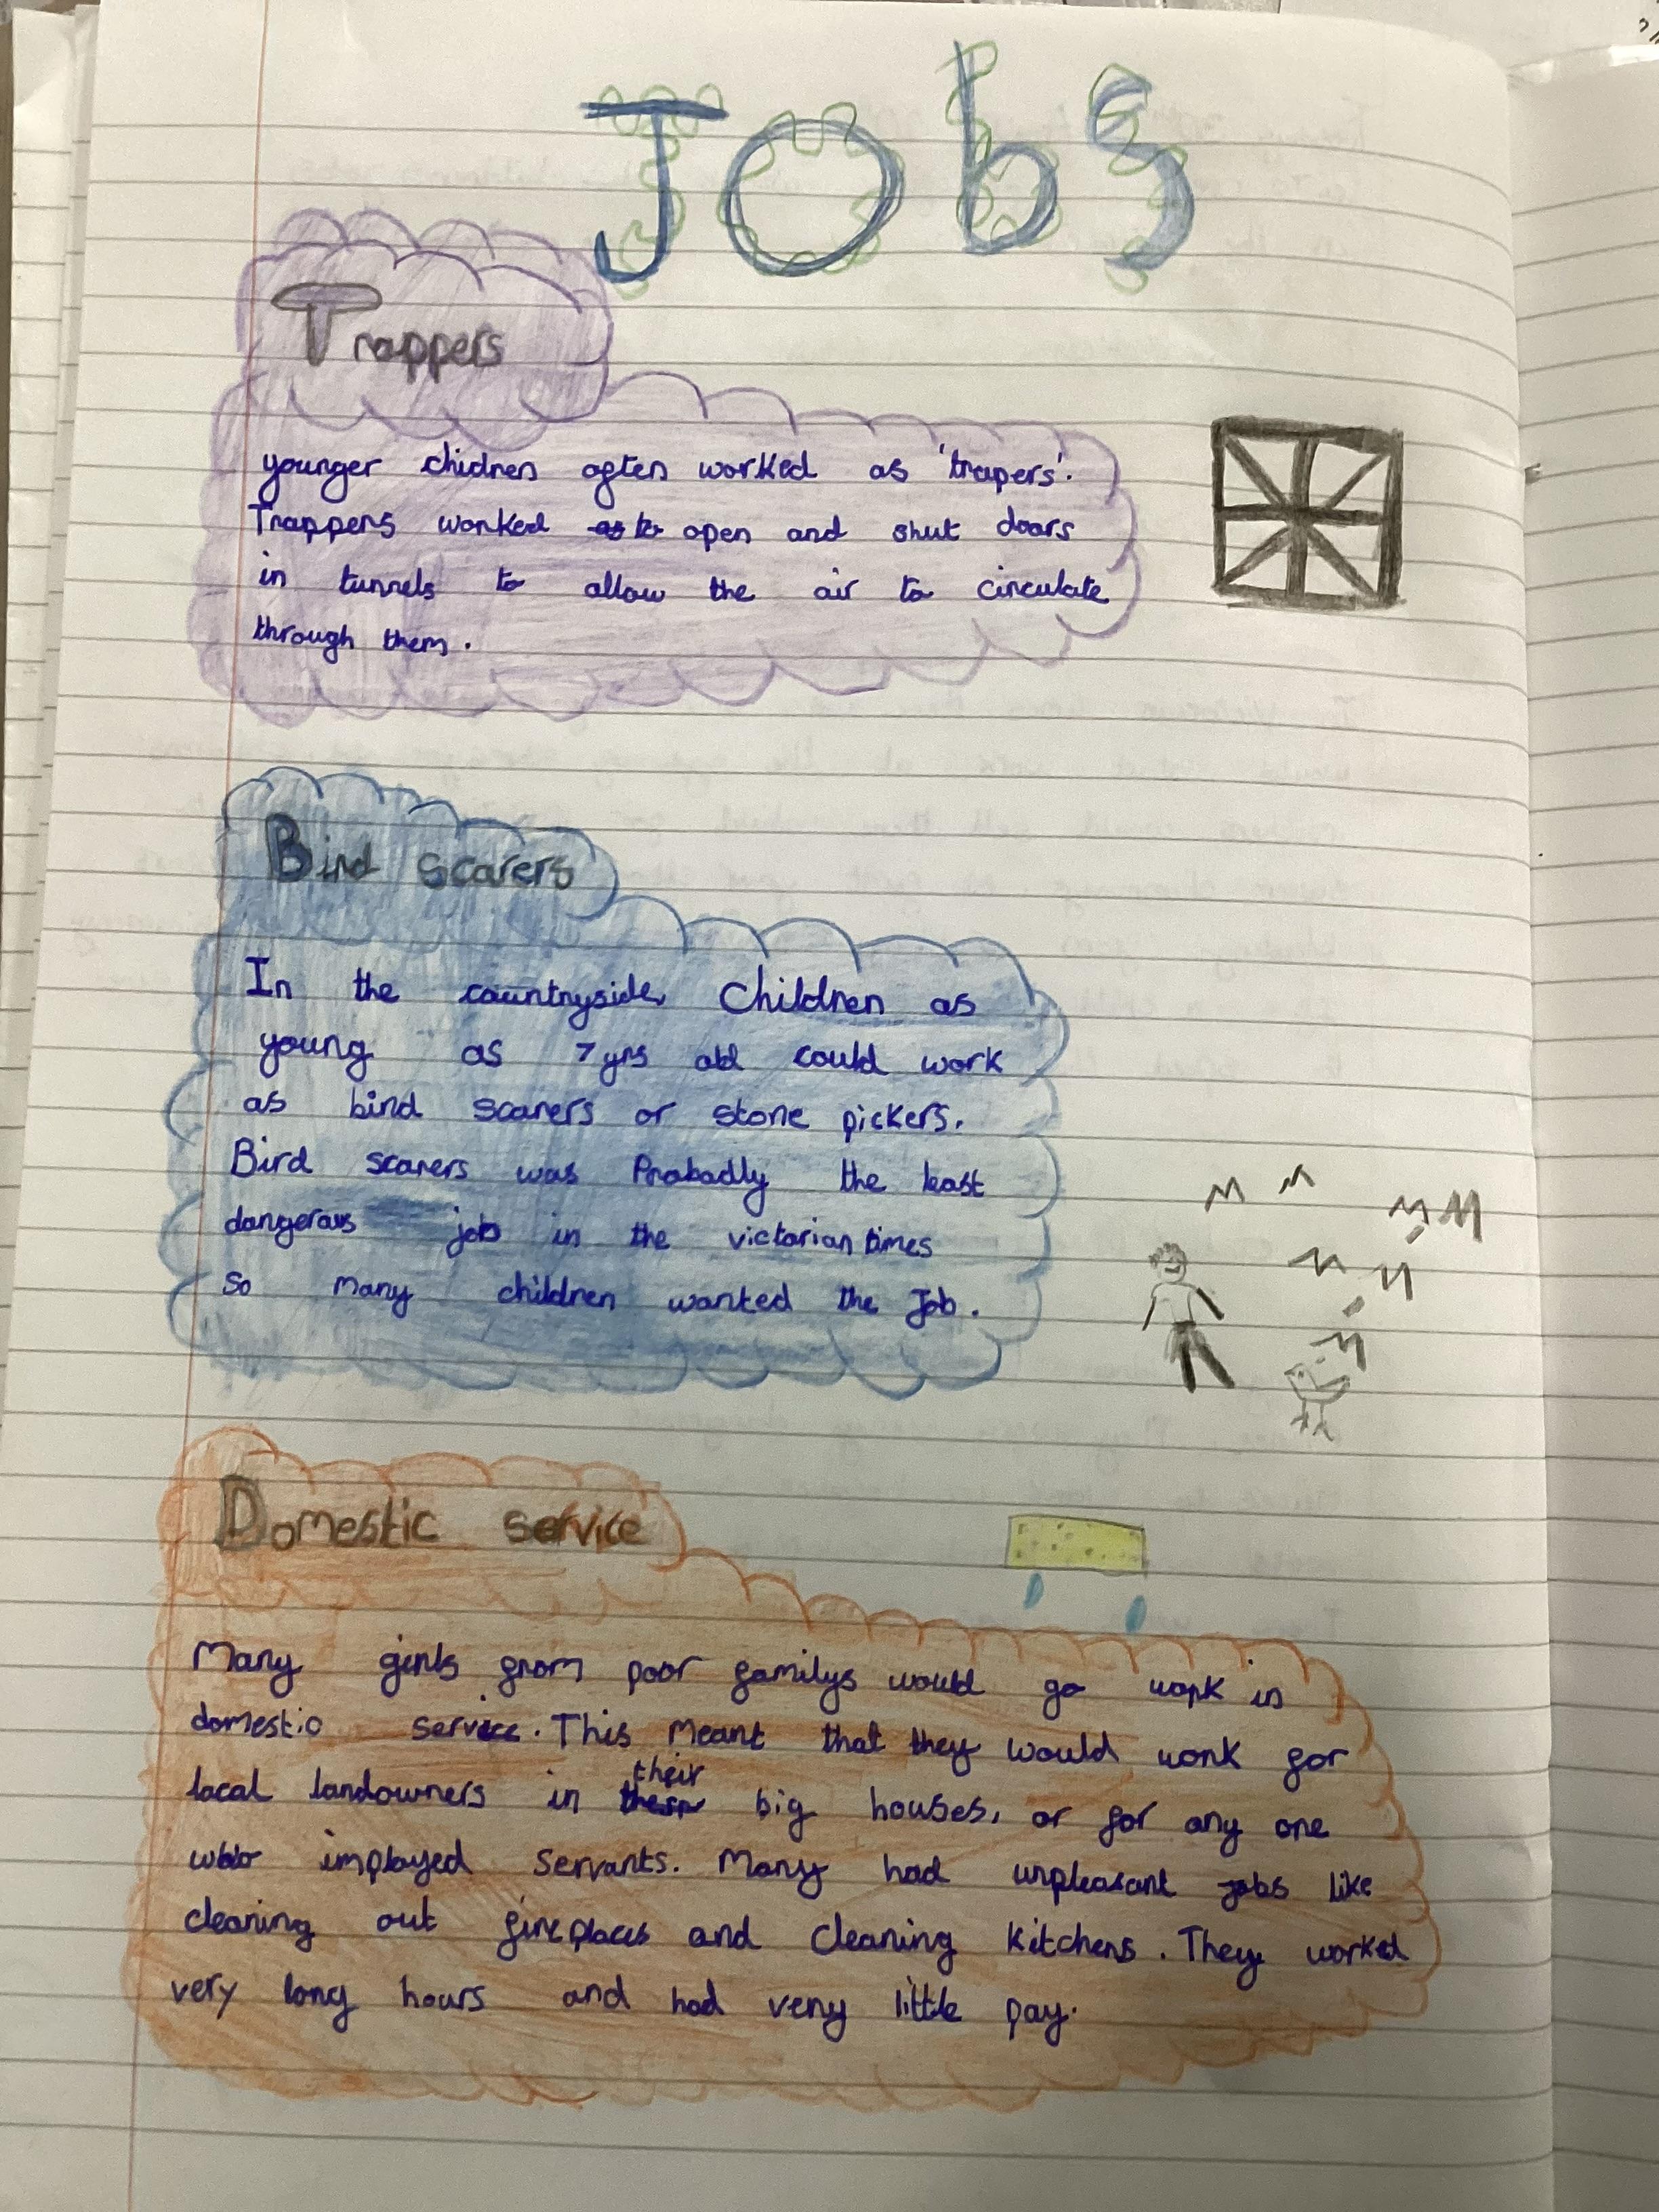 Jobs
Trappers
younger chidren often worked as 'trapers'.
Trappers worked as to open and shut doors
in tunnels to allow the air to circulate
through them.
Bird scarers
In the countryside, Children as
young as 7 yrs old could work
as bird scarers or stone pickers.
Bird scarers was Probadly the least
dangerous job in the victorian times
So many children wanted the Job.
Domestic service
Many girls from poor familys would go work in
domestic service. This meant that they would work for
local landowners in their big houses, or for any one
who imployed servants. Many had unpleasant jobs like
cleaning out fireplaces and cleaning kitchens. They worked
very long hours and had very little pay.